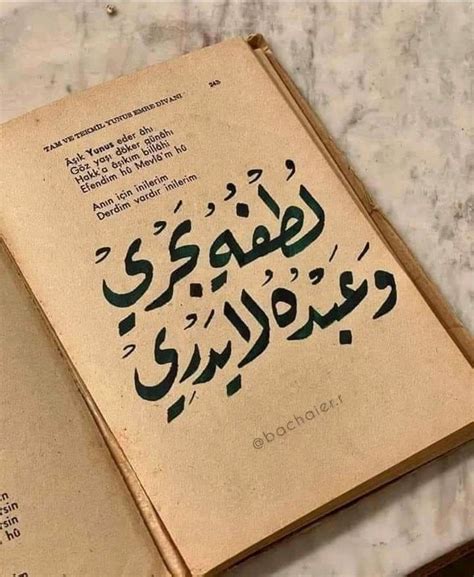 TAM VE TEKMİL YUNUS EMRE DİVANI 245
Âşık Yunus eder âhı
Göz yaşı döker günâhı
Hakk'a âşıkım billâhi
Efendim hû Mevlâ'm hû
Anın için inilerim
Derdim vardır inilerim
لُطْفُهُ يَجْرِي
وَعَبْدُهُ لَا يَدْرِي
@bachaier.r
rsin
rsin
hû